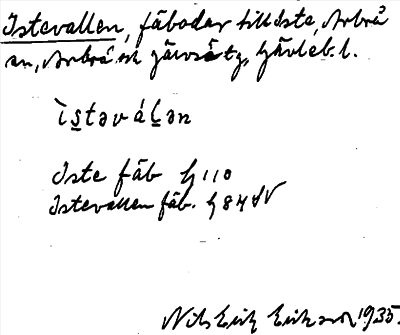 Istevallen, fäbodar till Iste, Arbrå
sn, Arbrå och Järvsö tg, Gävleb. l.
ìstəváḷən
Iste fäb G 110
Istevallen fäb. G 84 dV
Nils Erik Erikson 1935.